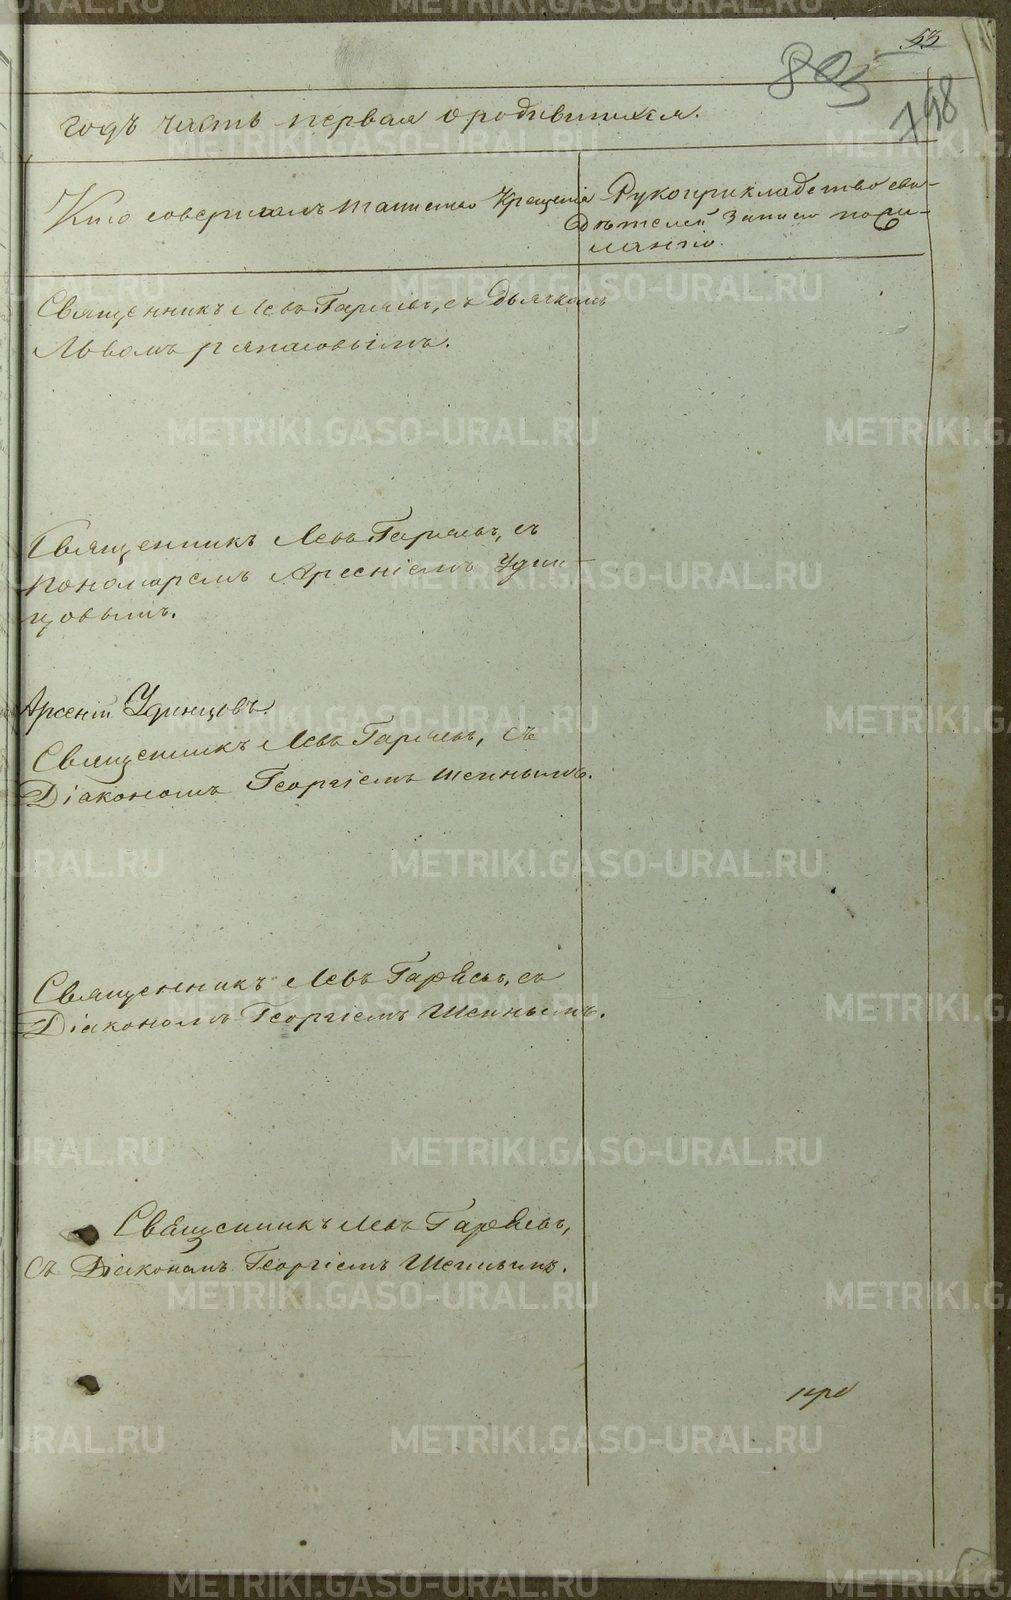 53
803
798
годъ часть первая о родившихся.
Кто совершалъ таинство Крещенія
Рукоприкладство сви-
дѣтелей записи по же-
ланію.
Священникъ Левъ Гаряевъ, съ Дьячкомъ
Львомъ
Священникъ Левъ Гаряевъ, съ
Пономаремъ Арсеніемъ Удин-
цовымъ.
Арсеній Удинцовъ.
Священникъ Левъ Гаряевъ, съ
Діакономъ Георгіемъ Шеинымъ.
Священникъ Левъ Гаряевъ, съ
Діакономъ Георгіемъ Шеинымъ.
Священникъ Левъ Гаряевъ,
съ Діакономъ Георгіемъ Шеинымъ.
METRIKI.GASO-URAL.RU